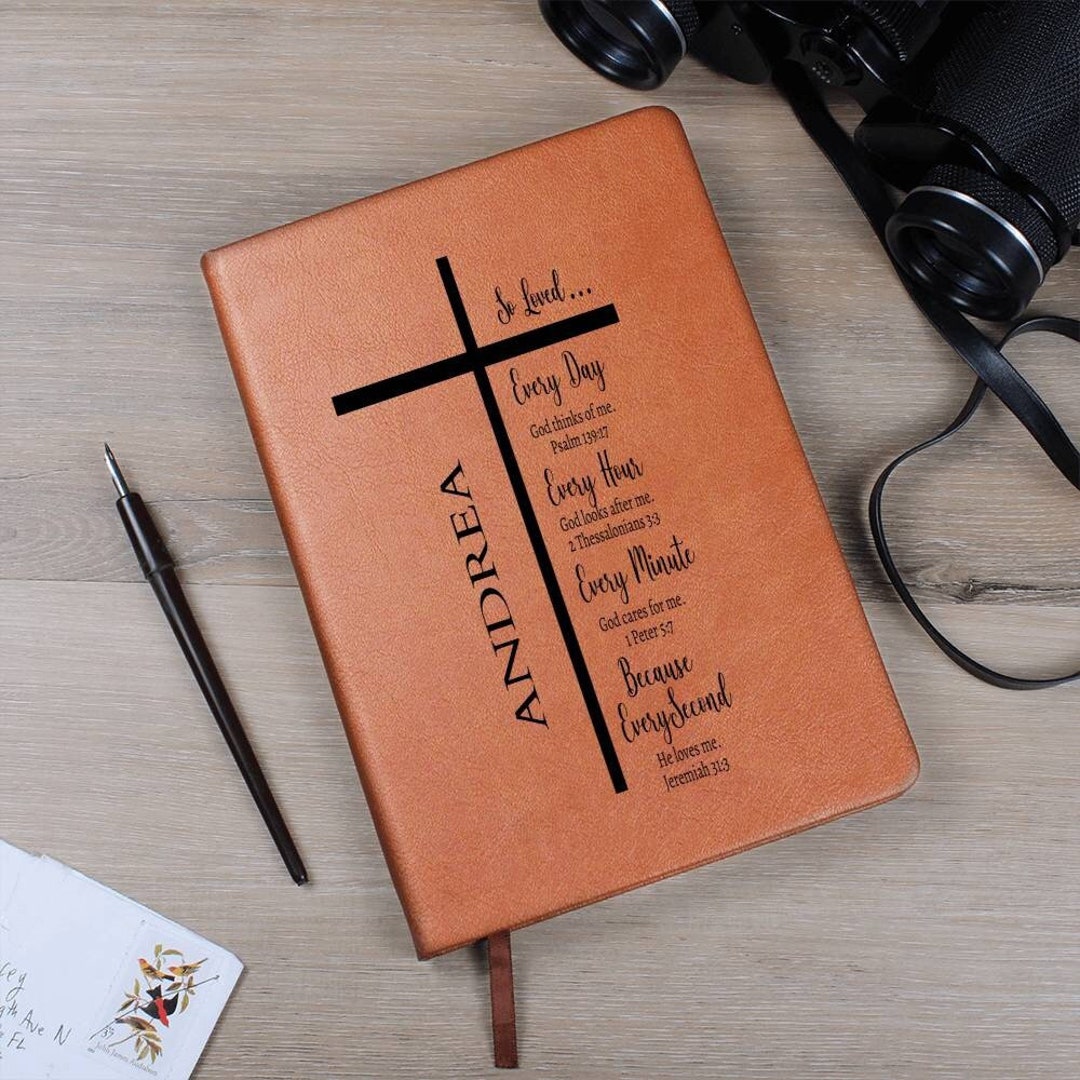 So Loved...
Every Day
God thinks of me.
Psalm 139:17
Every Hour
God looks after me.
2 Thessalonians 3:3
Every Minute
God cares for me.
1 Peter 5:7
Because
Every Second
He loves me.
Jeremiah 31:3
ANDREA
Ave N
FL
39
John James Audubon